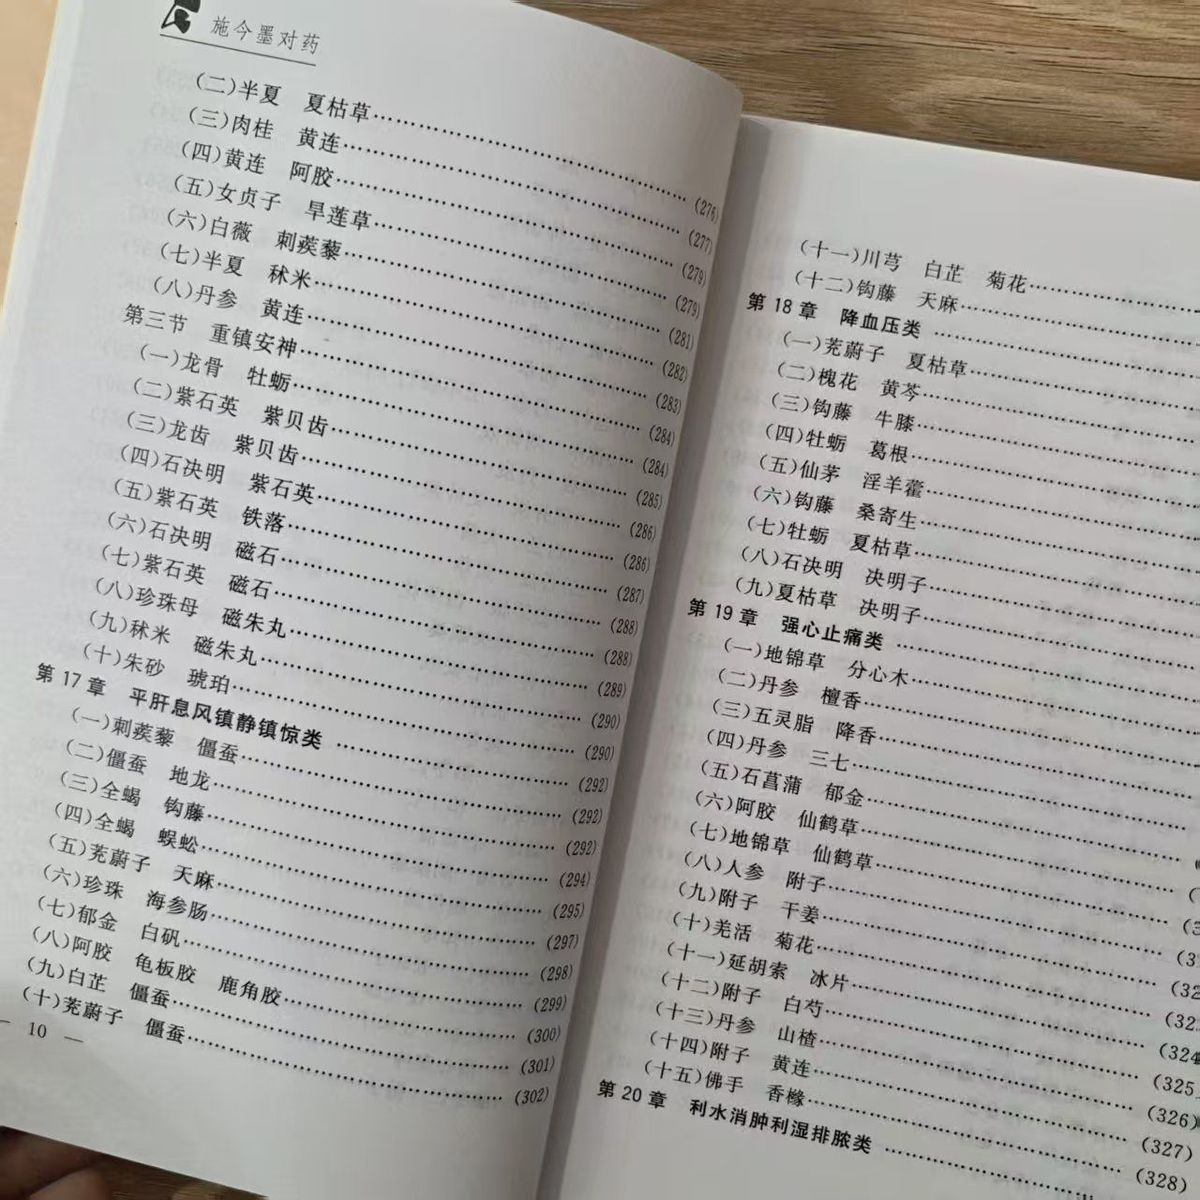 施今墨对药
(二)半夏 夏枯草……(276)
(三)肉桂 黄连……(277)
(四)黄连 阿胶……(279)
(五)女贞子 旱莲草……(279)
(六)白薇 刺蒺藜……(281)
(七)半夏 秫米……(282)
(八)丹参 黄连……(283)
第三节 重镇安神……(284)
(一)龙骨 牡蛎……(284)
(二)紫石英 紫贝齿……(285)
(三)龙齿 紫贝齿……(286)
(四)石决明 紫石英……(286)
(五)紫石英 铁落……(287)
(六)石决明 磁石……(288)
(七)紫石英 磁石……(288)
(八)珍珠母 磁朱丸……(289)
(九)秫米 磁朱丸……(290)
(十)朱砂 琥珀……(290)
第17章 平肝息风镇静镇惊类……(292)
(一)刺蒺藜 僵蚕……(292)
(二)僵蚕 地龙……(292)
(三)全蝎 钩藤……(294)
(四)全蝎 蜈蚣……(295)
(五)茺蔚子 天麻……(297)
(六)珍珠 海参肠……(298)
(七)郁金 白矾……(299)
(八)阿胶 龟板胶 鹿角胶……(300)
(九)白芷 僵蚕……(301)
(十)茺蔚子 僵蚕……(302)
— 10 —
(十一)川芎 白芷 菊花……
(十二)钩藤 天麻……
第18章 降血压类……
(一)茺蔚子 夏枯草……
(二)槐花 黄芩……
(三)钩藤 牛膝……
(四)牡蛎 葛根……
(五)仙茅 淫羊藿……
(六)钩藤 桑寄生……
(七)牡蛎 夏枯草……
(八)石决明 决明子……
(九)夏枯草 决明子……
第19章 强心止痛类……
(一)地锦草 分心木……
(二)丹参 檀香……
(三)五灵脂 降香……
(四)丹参 三七……
(五)石菖蒲 郁金……
(六)阿胶 仙鹤草……
(七)地锦草 仙鹤草……
(八)人参 附子……
(九)附子 干姜……
(十)羌活 菊花……
(十一)延胡索 冰片……(324
(十二)附子 白芍……(325
(十三)丹参 山楂……(326
(十四)附子 黄连……(327)
(十五)佛手 香橼……(328)
第20章 利水消肿利湿排脓类……